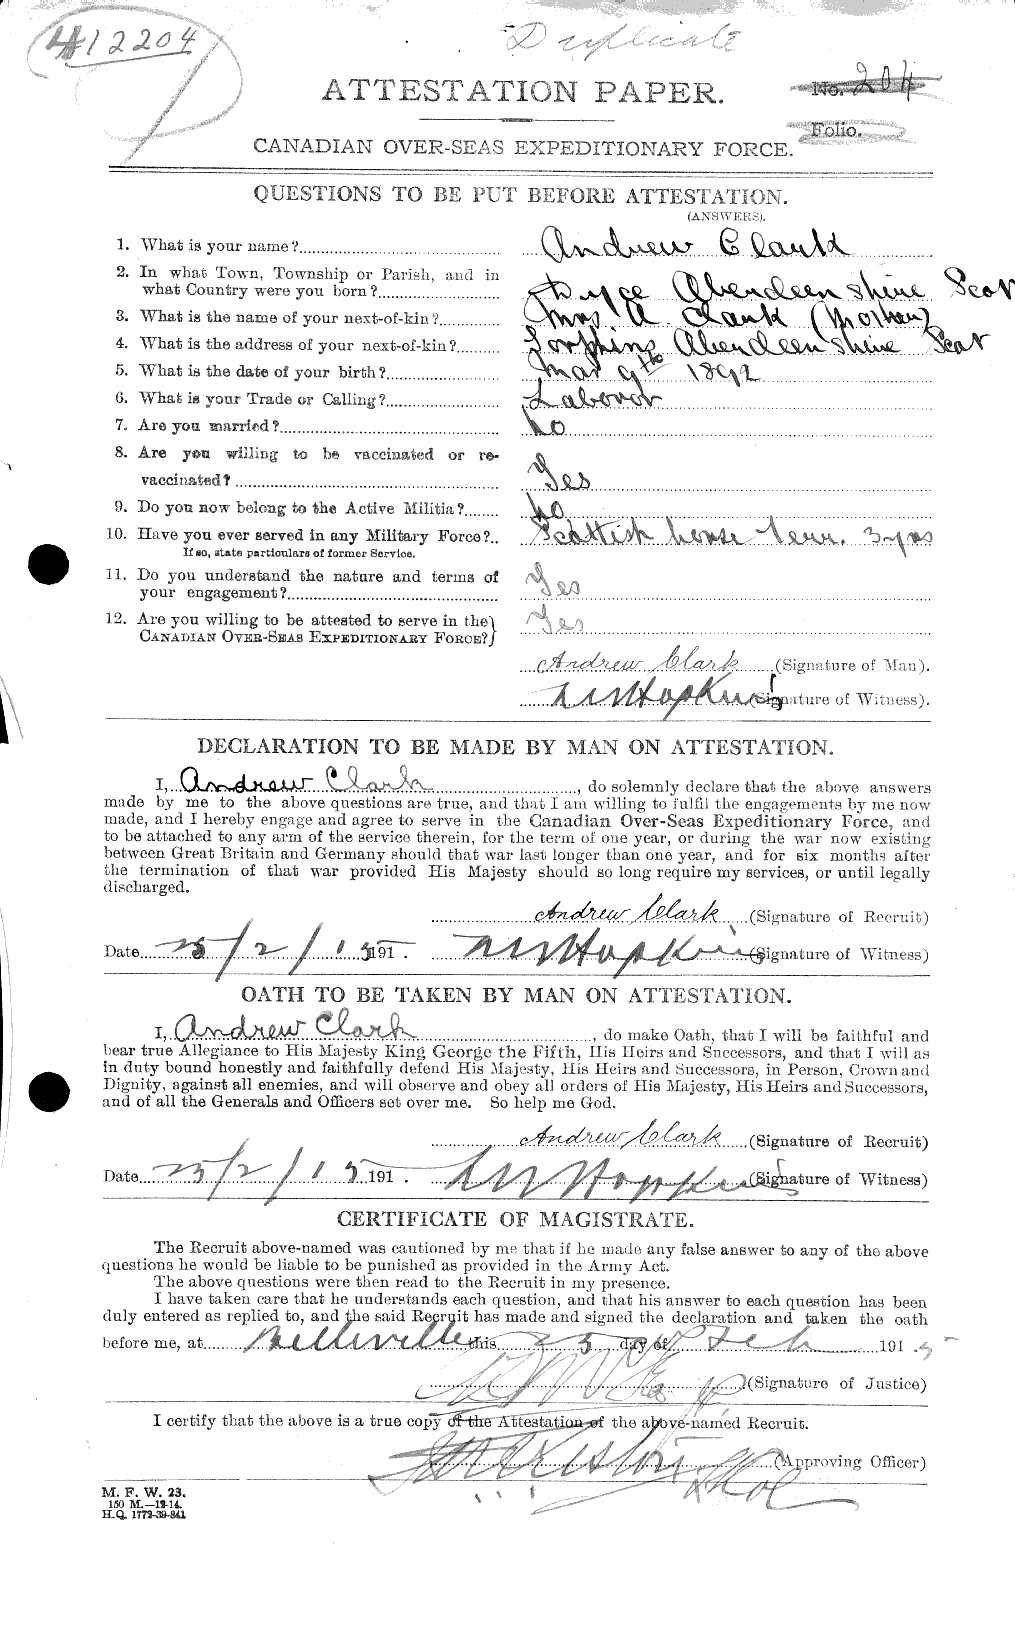 412204
Duplicate
ATTESTATION PAPER.
No. 204
Folio.
CANADIAN OVER-SEAS EXPEDITIONARY FORCE.
QUESTIONS TO BE PUT BEFORE ATTESTATION.
(ANSWERS).
1. What is your name? Andrew Clark
2. In what Town, Township or Parish, and in
what Country were you born? Aberdeenshire Scot
3. What is the name of your next-of-kin? Mrs A. Clark (Mother)
4. What is the address of your next-of-kin? Torphins Aberdeenshire Scot
5. What is the date of your birth? Mar 9th 1892
6. What is your Trade or Calling? Laboror
7. Are you married? No
8. Are you willing to be vaccinated or re-
vaccinated? Yes
9. Do you now belong to the Active Militia? No
10. Have you ever served in any Military Force? Scottish horse Terr. 3 yrs
If so, state particulars of former Service.
11. Do you understand the nature and terms of
your engagement? Yes
12. Are you willing to be attested to serve in the Yes
CANADIAN OVER-SEAS EXPEDITIONARY FORCE?
Andrew Clark (Signature of Man).
Hopkins (Signature of Witness).
DECLARATION TO BE MADE BY MAN ON ATTESTATION.
I, Andrew Clark, do solemnly declare that the above answers
made by me to the above questions are true, and that I am willing to fulfil the engagements by me now
made, and I hereby engage and agree to serve in the Canadian Over-Seas Expeditionary Force, and
to be attached to any arm of the service therein, for the term of one year, or during the war now existing
between Great Britain and Germany should that war last longer than one year, and for six months after
the termination of that war provided His Majesty should so long require my services, or until legally
discharged.
Andrew Clark (Signature of Recruit)
Date 25/2/15 191 . Hopkins (Signature of Witness)
OATH TO BE TAKEN BY MAN ON ATTESTATION.
I, Andrew Clark, do make Oath, that I will be faithful and
bear true Allegiance to His Majesty King George the Fifth, His Heirs and Successors, and that I will as
in duty bound honestly and faithfully defend His Majesty, His Heirs and Successors, in Person, Crown and
Dignity, against all enemies, and will observe and obey all orders of His Majesty, His Heirs and Successors,
and of all the Generals and Officers set over me. So help me God.
Andrew Clark (Signature of Recruit)
Date 25/2/15 191 . Hopkins (Signature of Witness)
CERTIFICATE OF MAGISTRATE.
The Recruit above-named was cautioned by me that if he made any false answer to any of the above
questions he would be liable to be punished as provided in the Army Act.
The above questions were then read to the Recruit in my presence.
I have taken care that he understands each question, and that his answer to each question has been
duly entered as replied to, and the said Recruit has made and signed the declaration and taken the oath
before me, at Belleville this 25 day of Feb 1915
(Signature of Justice)
I certify that the above is a true copy of the Attestation of the above-named Recruit.
(Approving Officer)
M. F. W. 23.
150 M.—12-14.
H.Q. 1772-39-841